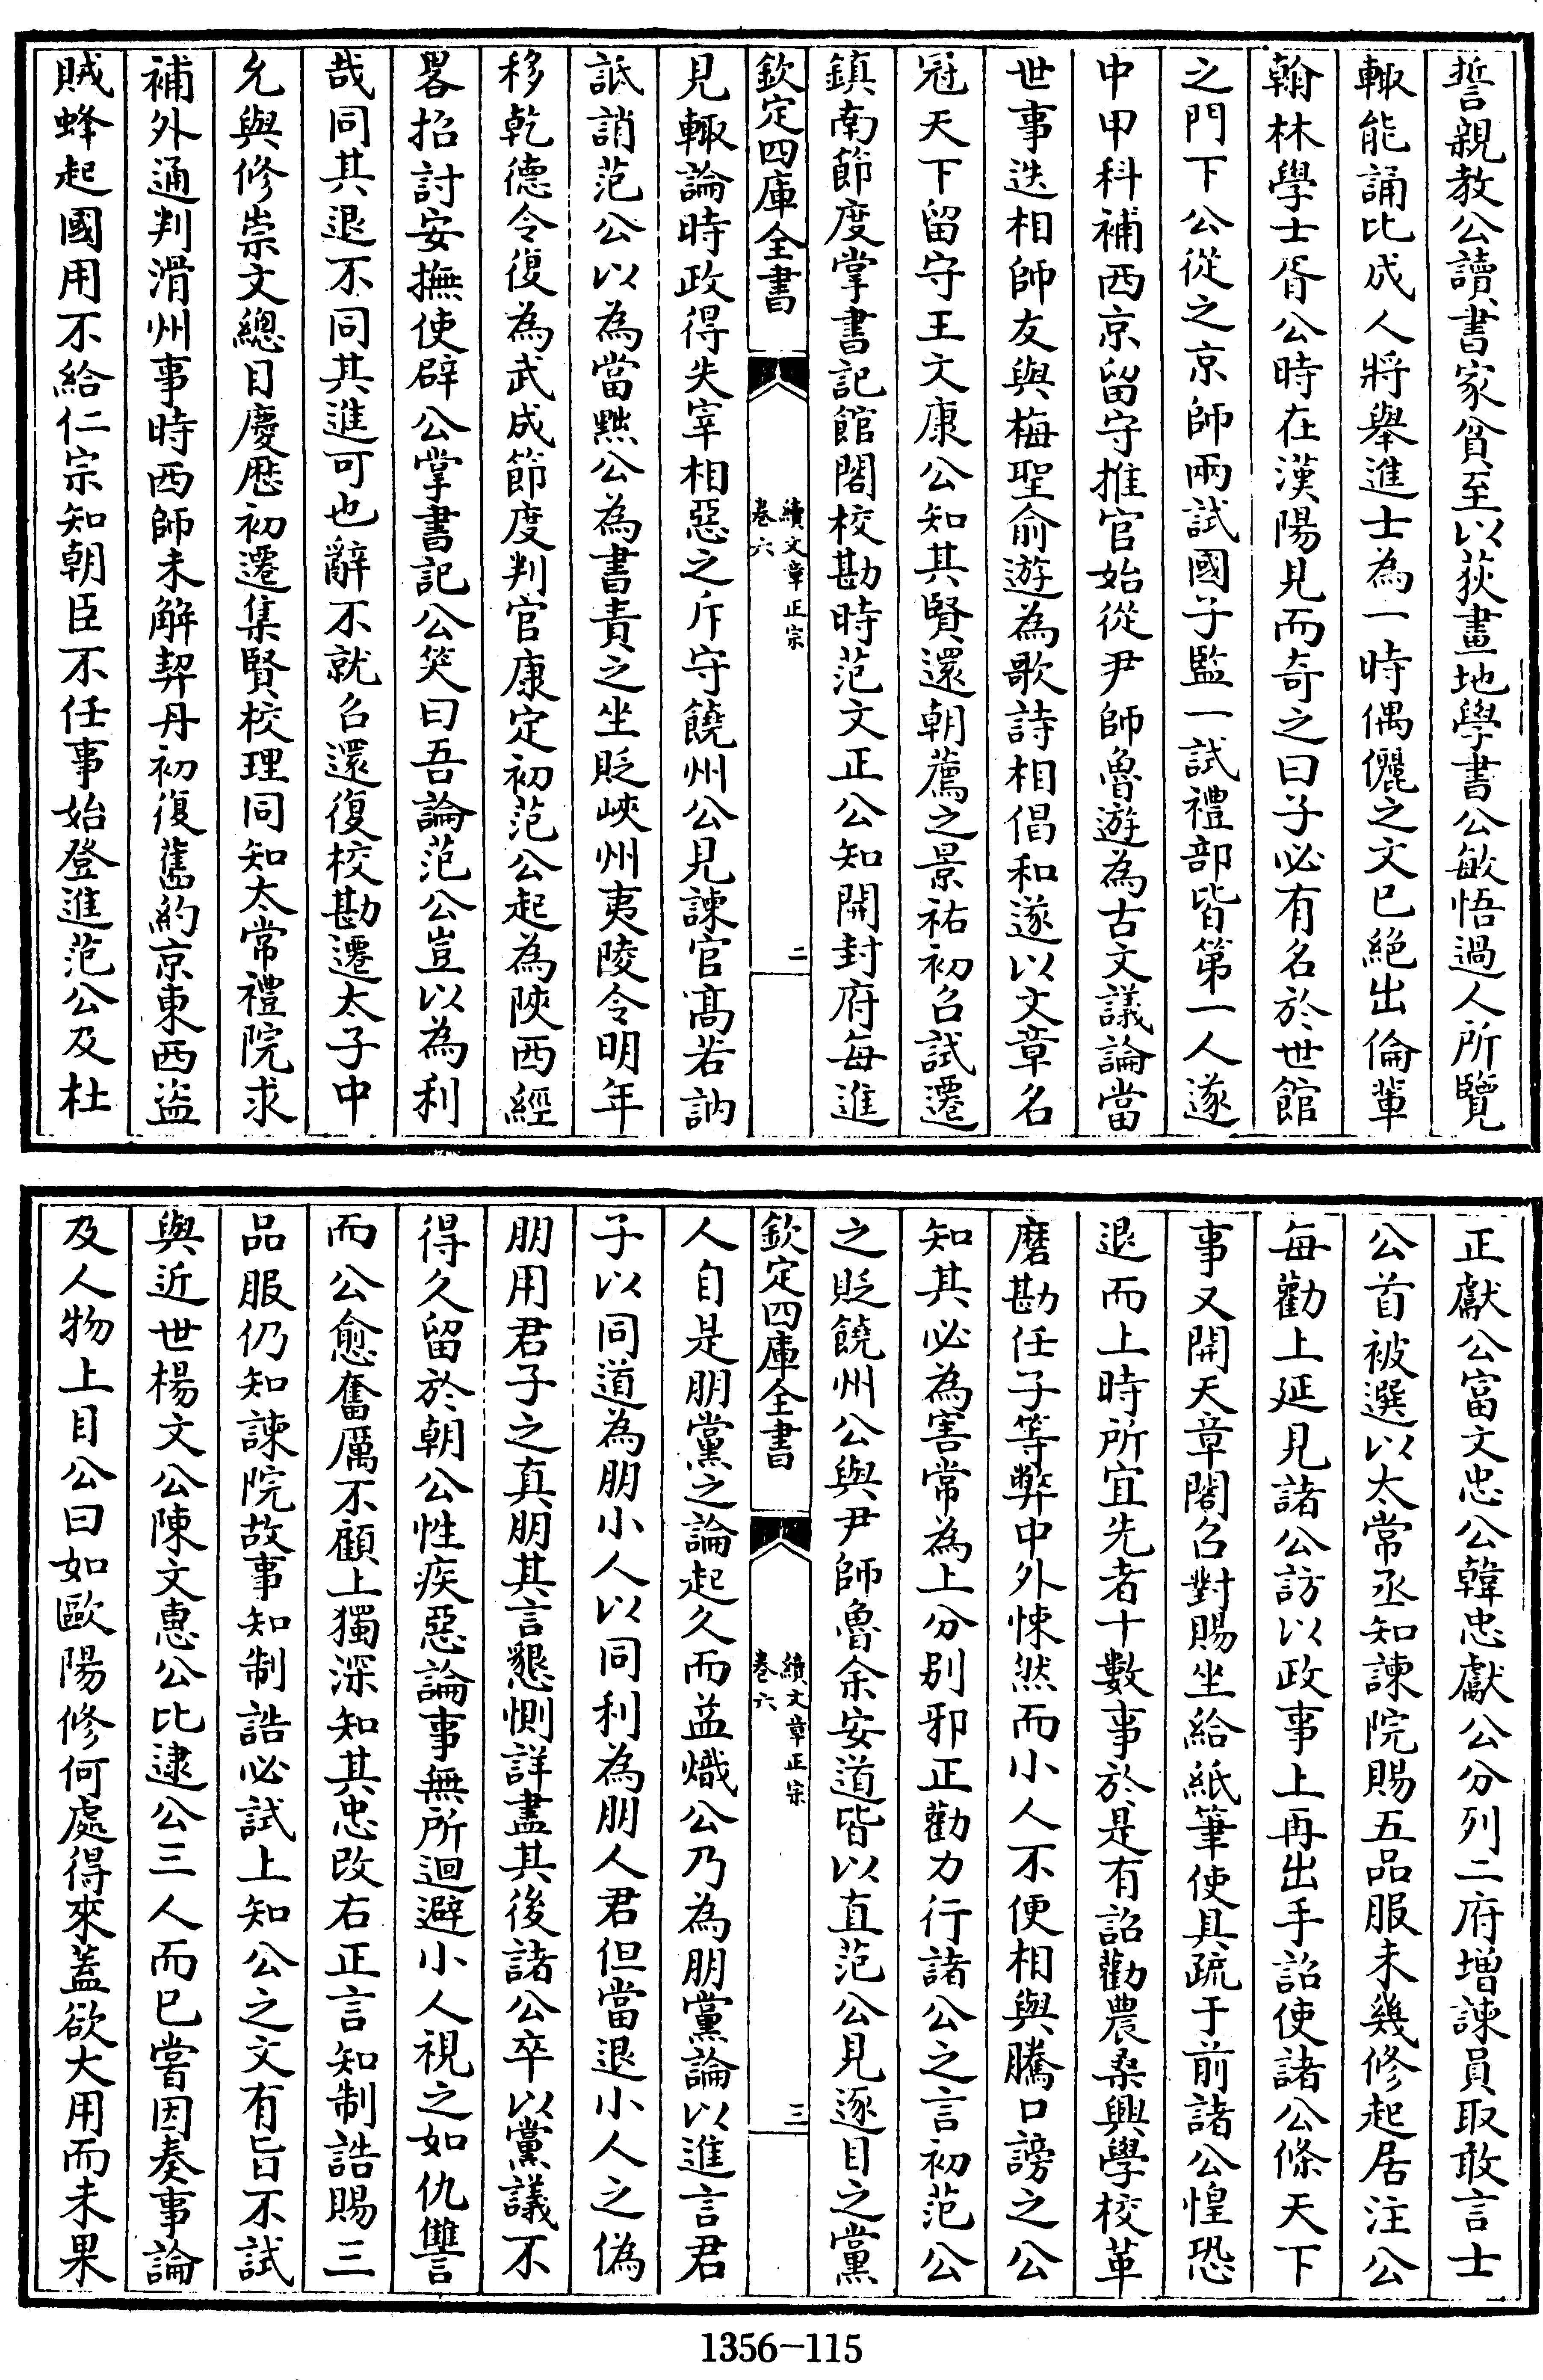 誓親教公讀書家貧至以荻畫地學書公敏悟過人所覽
輒能誦比成人將舉進士為一時偶儷之文已絕出倫輩
翰林學士胥公時在漢陽見而奇之曰子必有名於世館
之門下公從之京師兩試國子監一試禮部皆第一人遂
中甲科補西京留守推官始從尹師魯遊為古文議論當
世事迭相師友與梅聖俞遊為歌詩相倡和遂以文章名
冠天下留守王文康公知其賢還朝薦之景祐初召試遷
鎮南節度掌書記館閣校勘時范文正公知開封府每進
欽定四庫全書
續文章正宗
卷六
二
見輒論時政得失宰相惡之斥守饒州公見諫官高若訥
詆誚范公以為當黜公為書責之坐貶峽州夷陵令明年
移乾德令復為武成節度判官康定初范公起為陝西經
畧招討安撫使辟公掌書記公笑曰吾論范公豈以為利
哉同其退不同其進可也辭不就召還復校勘遷太子中
允與修崇文總目慶厯初遷集賢校理同知太常禮院求
補外通判滑州事時西師未解契丹初復舊約京東西盜
賊蜂起國用不給仁宗知朝臣不任事始登進范公及杜
正獻公富文忠公韓忠獻公分列二府增諫員取敢言士
公首被選以太常丞知諫院賜五品服未幾修起居注公
每勸上延見諸公訪以政事上再出手詔使諸公條天下
事又開天章閣召對賜坐給紙筆使具疏于前諸公惶恐
退而上時所宜先者十數事於是有詔勸農桑興學校革
磨勘任子等弊中外悚然而小人不便相與騰口謗之公
知其必為害常為上分別邪正勸力行諸公之言初范公
之貶饒州公與尹師魯余安道皆以直范公見逐目之黨
欽定四庫全書
續文章正宗
卷六
三
人自是朋黨之論起久而益熾公乃為朋黨論以進言君
子以同道為朋小人以同利為朋人君但當退小人之偽
朋用君子之真朋其言懇惻詳盡其後諸公卒以黨議不
得久留於朝公性疾惡論事無所迴避小人視之如仇讐
而公愈奮厲不顧上獨深知其忠改右正言知制誥賜三
品服仍知諫院故事知制誥必試上知公之文有旨不試
與近世楊文公陳文惠公比逮公三人而已嘗因奏事論
及人物上目公曰如歐陽修何處得來蓋欲大用而未果
1356-115